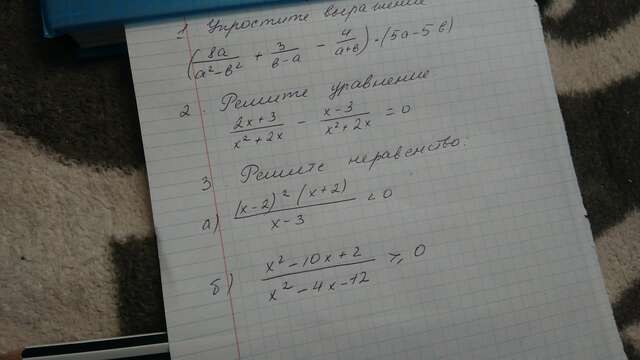 1 Упростите выражение
(8a/(a²-в²) + 3/(в-a) - 4/(a+в)) · (5a-5в)
2. Решите уравнение
(2x+3)/(x²+2x) - (x-3)/(x²+2x) = 0
3 Решите неравенство:
а) (x-2)²(x+2)/(x-3) < 0
б) (x²-10x+2)/(x²-4x-12) ≥ 0